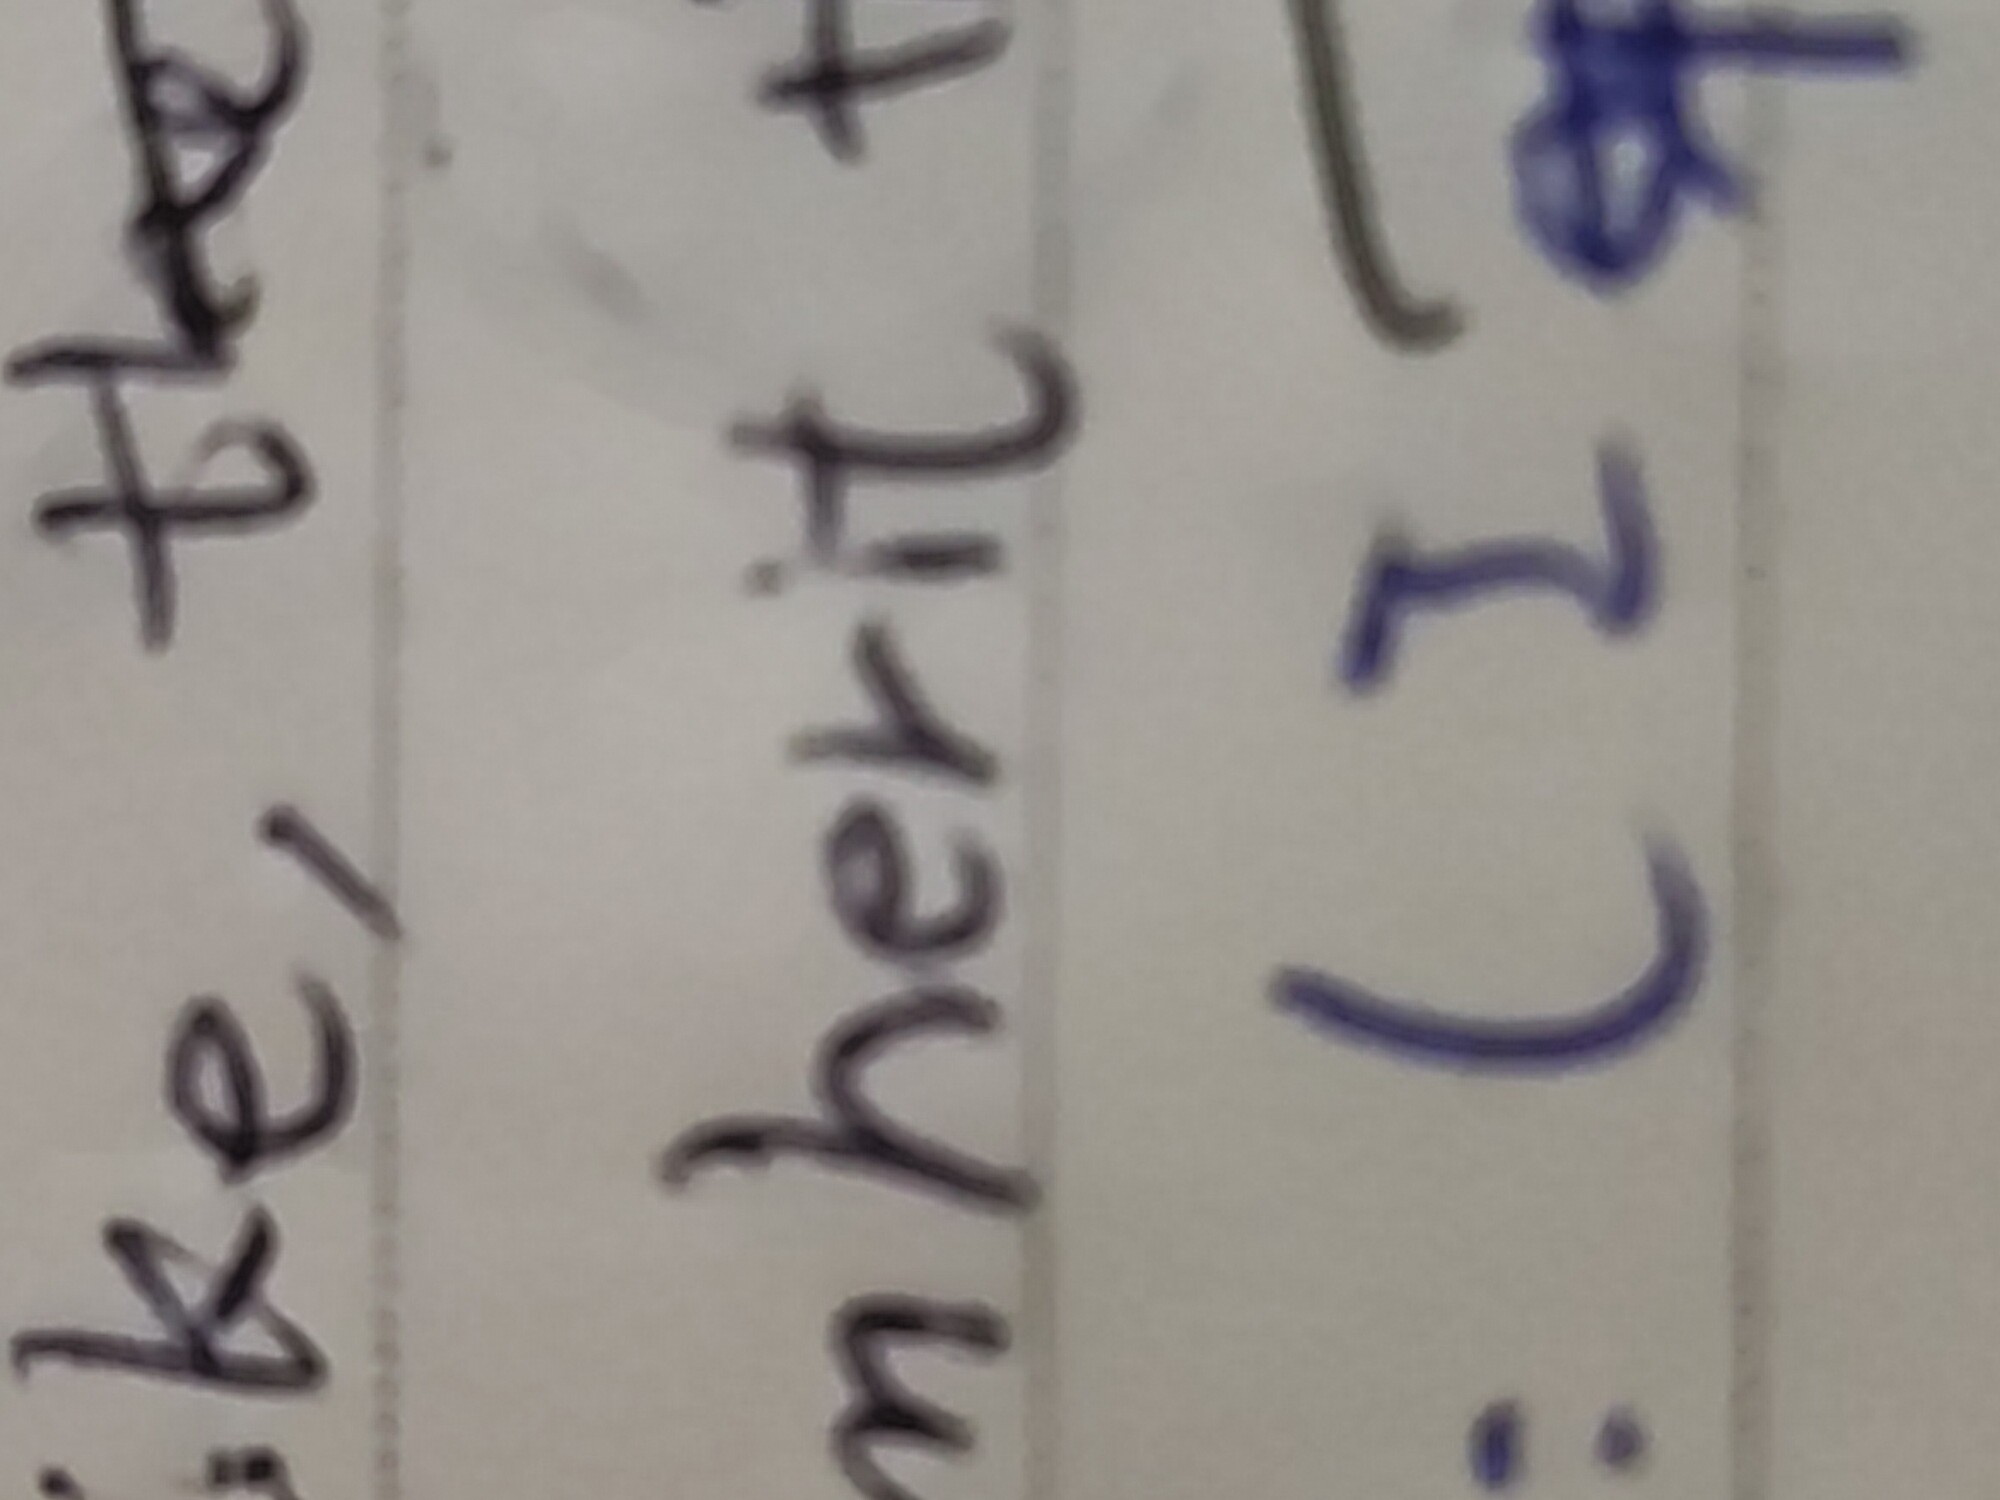 ike, the
nherit t
: ( I